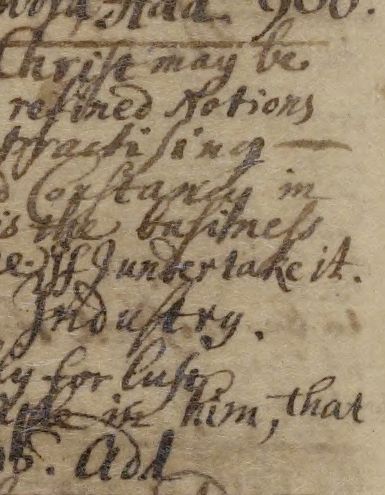 Christ may be
refined Notions
practising —
Constancy in
is the business
If I undertake it.
Industry.
ly for lust
in him, that
Add